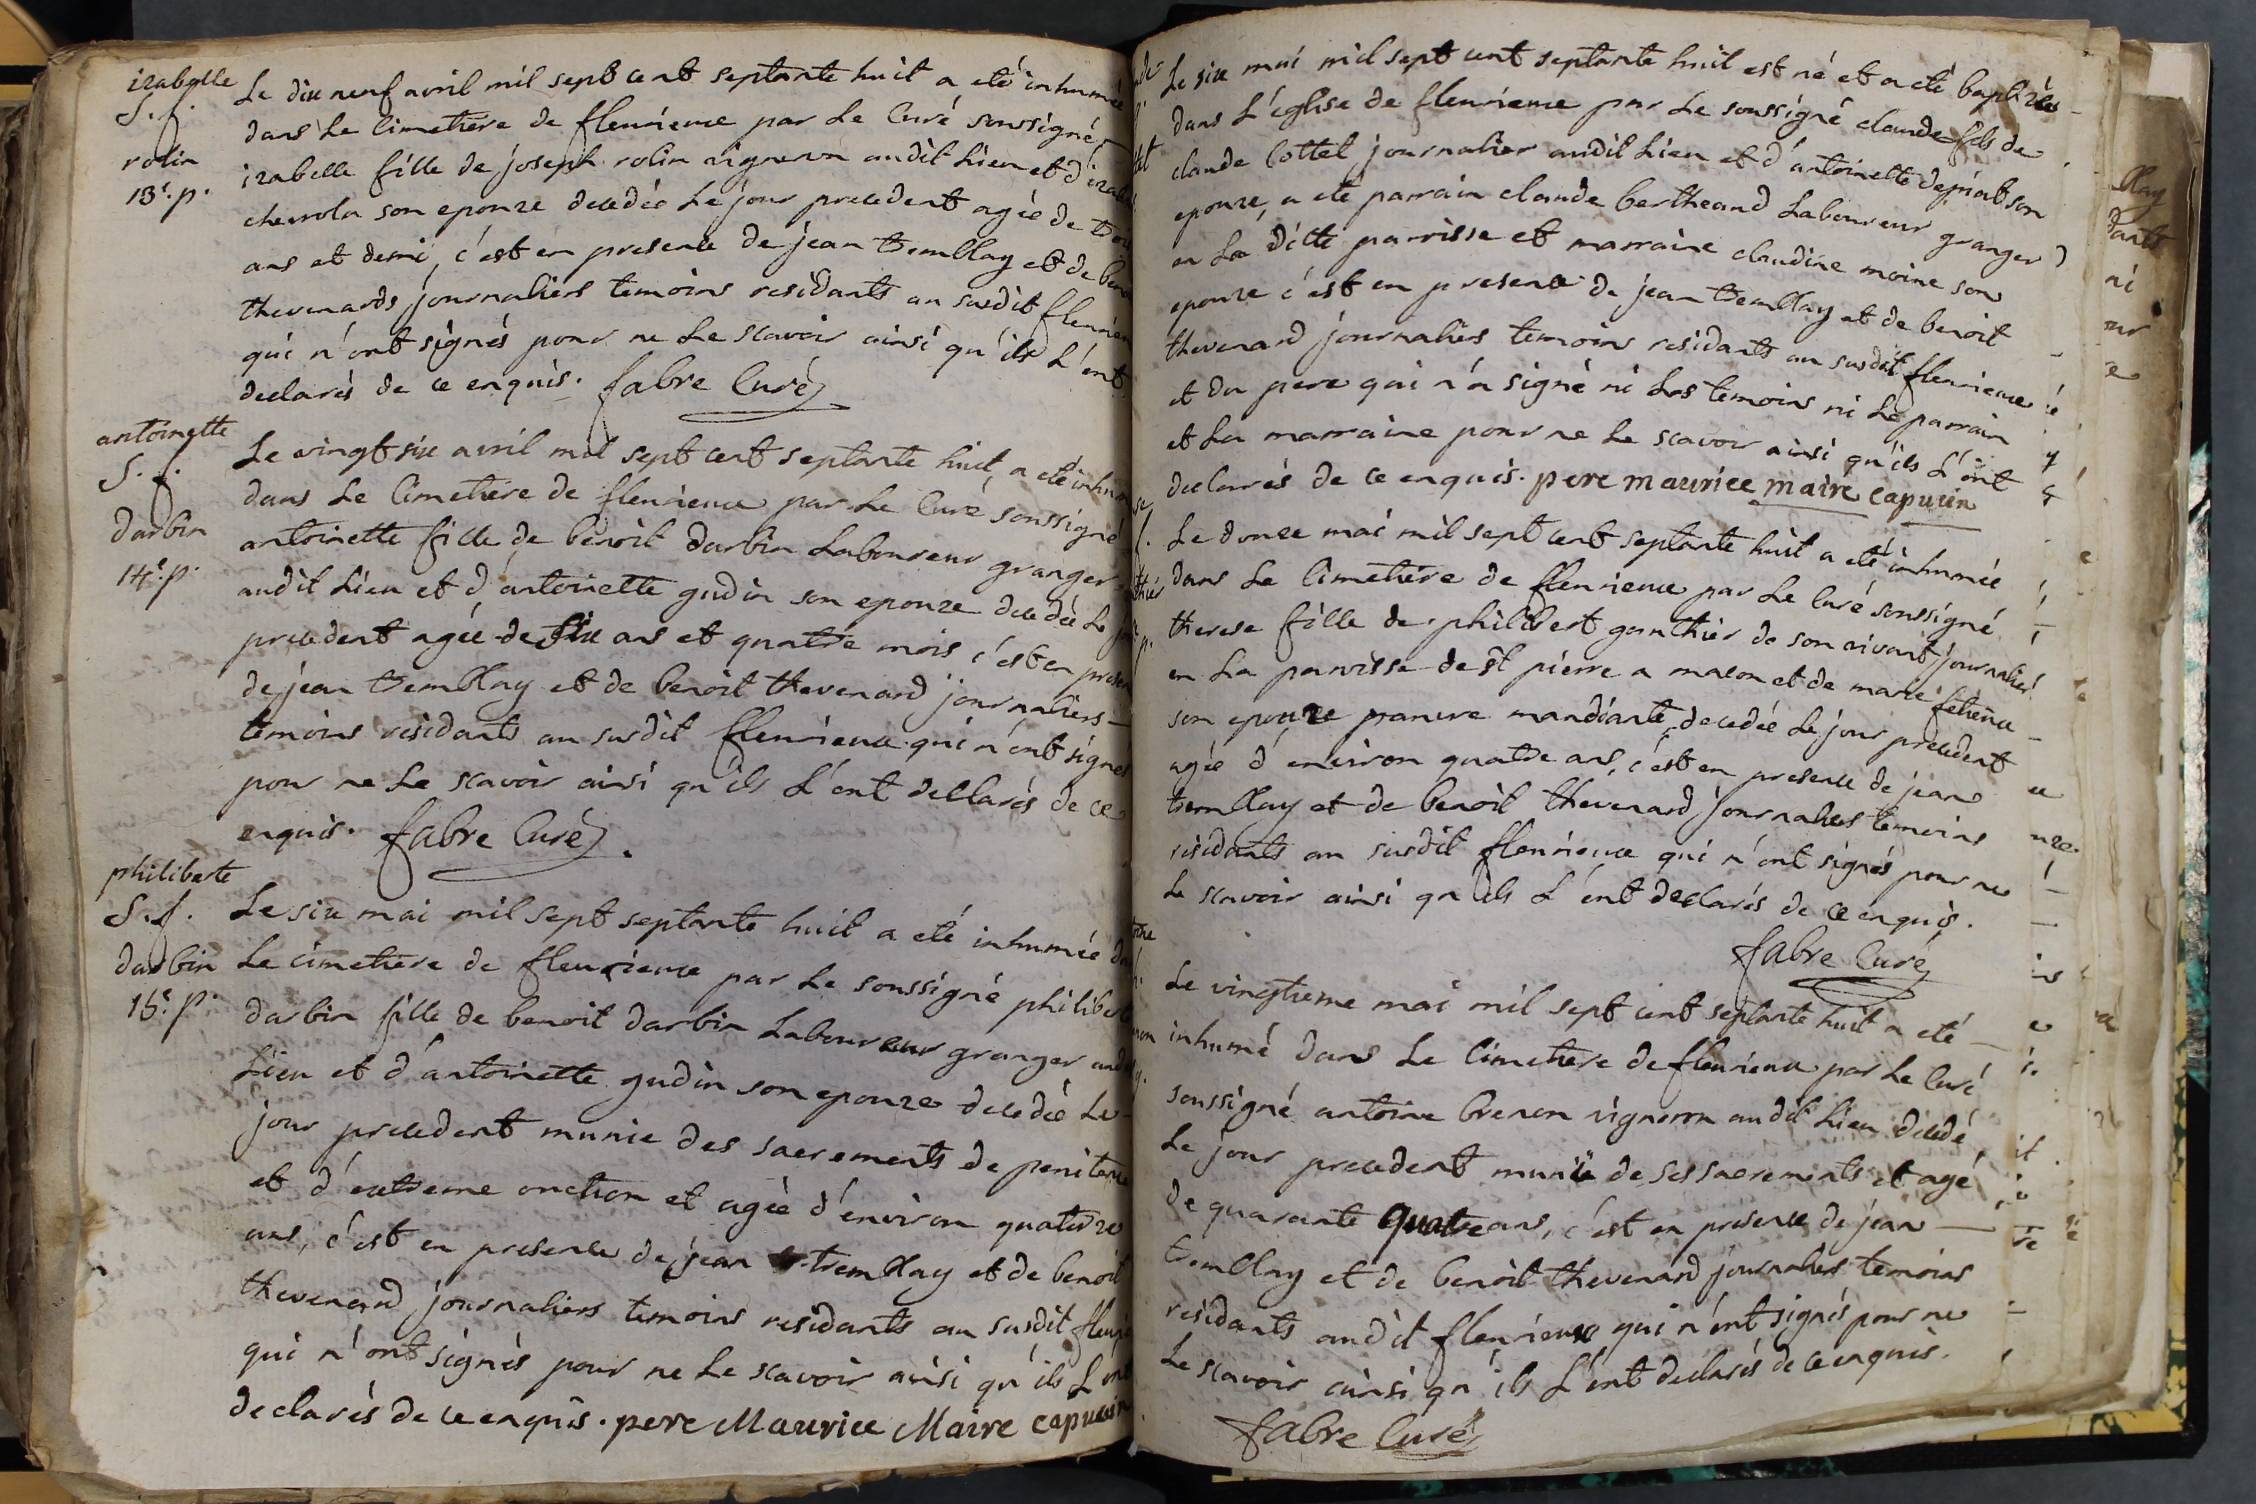 izabelle
S. f.
rolin
13e. p.
Le dix neuf avril mil sept cent septante huit a eté inhumée
dans Le Cimetiere de fleurieux par Le Curé soussigné
izabelle fille de joseph rolin vigneron audit Lieu et d'izabelle
chevrola son epouze decedée Le jour precedent agée de trois
ans et demi, c'est en presence de jean tremblay et de benoit
thevenards journaliers temoins residants au susdit fleurieux
qui n'ont signés pour ne Le scavoir ainsi qu'ils L'ont
declarés de ce enquis. fabre Curé
antoinette
S. f.
darbin
14e. p.
Le vingt six avril mil sept cent septante huit, a eté inhumée
dans Le Cimetiere de fleurieux par Le Curé soussigné
antoinette fille de benoit darbin Laboureur granger
audit Lieu et d'antoinette gudin son epouze decedée Le jour
precedent agée de six ans et quatre mois c'est en presence
de jean tremblay et de benoit thevenard journaliers
temoins residants au susdit fleurieux qui n'ont signés
pour ne Le scavoir ainsi qu'ils L'ont declarés de ce
enquis. fabre Curé.
philiberte
S. f.
darbin
15e. p.
Le six mai mil sept septante huit a eté inhumée dans
Le cimetiere de fleurieux par Le soussigné philiberte
darbin fille de benoit darbin Laboureur granger audit
Lieu et d'antoinette gudin son epouze decedée Le
jour precedent munie des sacrements de penitence
et d'extreme onction et agée d'environ quatorze
ans, c'est en presence de jean tremblay et de benoit
thevenard journaliers temoins residants au susdit fleurieux
qui n'ont signés pour ne Le scavoir ainsi qu'ils L'ont
declarés de ce enquis. pere Maurice Maire capucin
Le six mai mil sept cent septante huit est né et a eté baptizé
dans L'église de fleurieux par Le soussigné claude fils de
claude Cottet journalier audit Lieu et d'antoinette son
epouze, a eté parrain claude bertheaud Laboureur granger
en La ditte parroisse et marraine claudine moine son
epouze c'est en presence de jean tremblay et de benoit
thevenard journaliers temoins residants au susdit fleurieux
et du pere qui n'a signé ni Les temoins ni Le parrain
et La marraine pour ne Le scavoir ainsi qu'ils L'ont
declarés de ce enquis. pere maurice maire capucin
Le douze mai mil sept cent septante huit a eté inhumée
dans Le Cimetiere de fleurieux par Le Curé soussigné
therese fille de philibert gonthier de son vivant journalier
en La parroisse de st pierre a macon et de marie
son epouze pauvre mandiante, decedée Le jour precedent
agée d'environ quatre ans, c'est en presence de jean
tremblay et de benoit thevenard journaliers temoins
residants au susdit fleurieux qui n'ont signés pour ne
Le scavoir ainsi qu'ils L'ont declarés de ce enquis.
fabre Curé
Le vingtieme mai mil sept cent septante huit a eté
inhumé dans Le Cimetiere de fleurieux par Le Curé
soussigné antoine brenon vigneron audit Lieu decedé
Le jour precedent muni de ses sacrements et agé
de quarante quatre ans, c'est en presence de jean
tremblay et de benoit thevenard journaliers temoins
residants audit fleurieux qui n'ont signés pour ne
Le scavoir ainsi qu'ils L'ont declarés de ce enquis.
fabre Curé